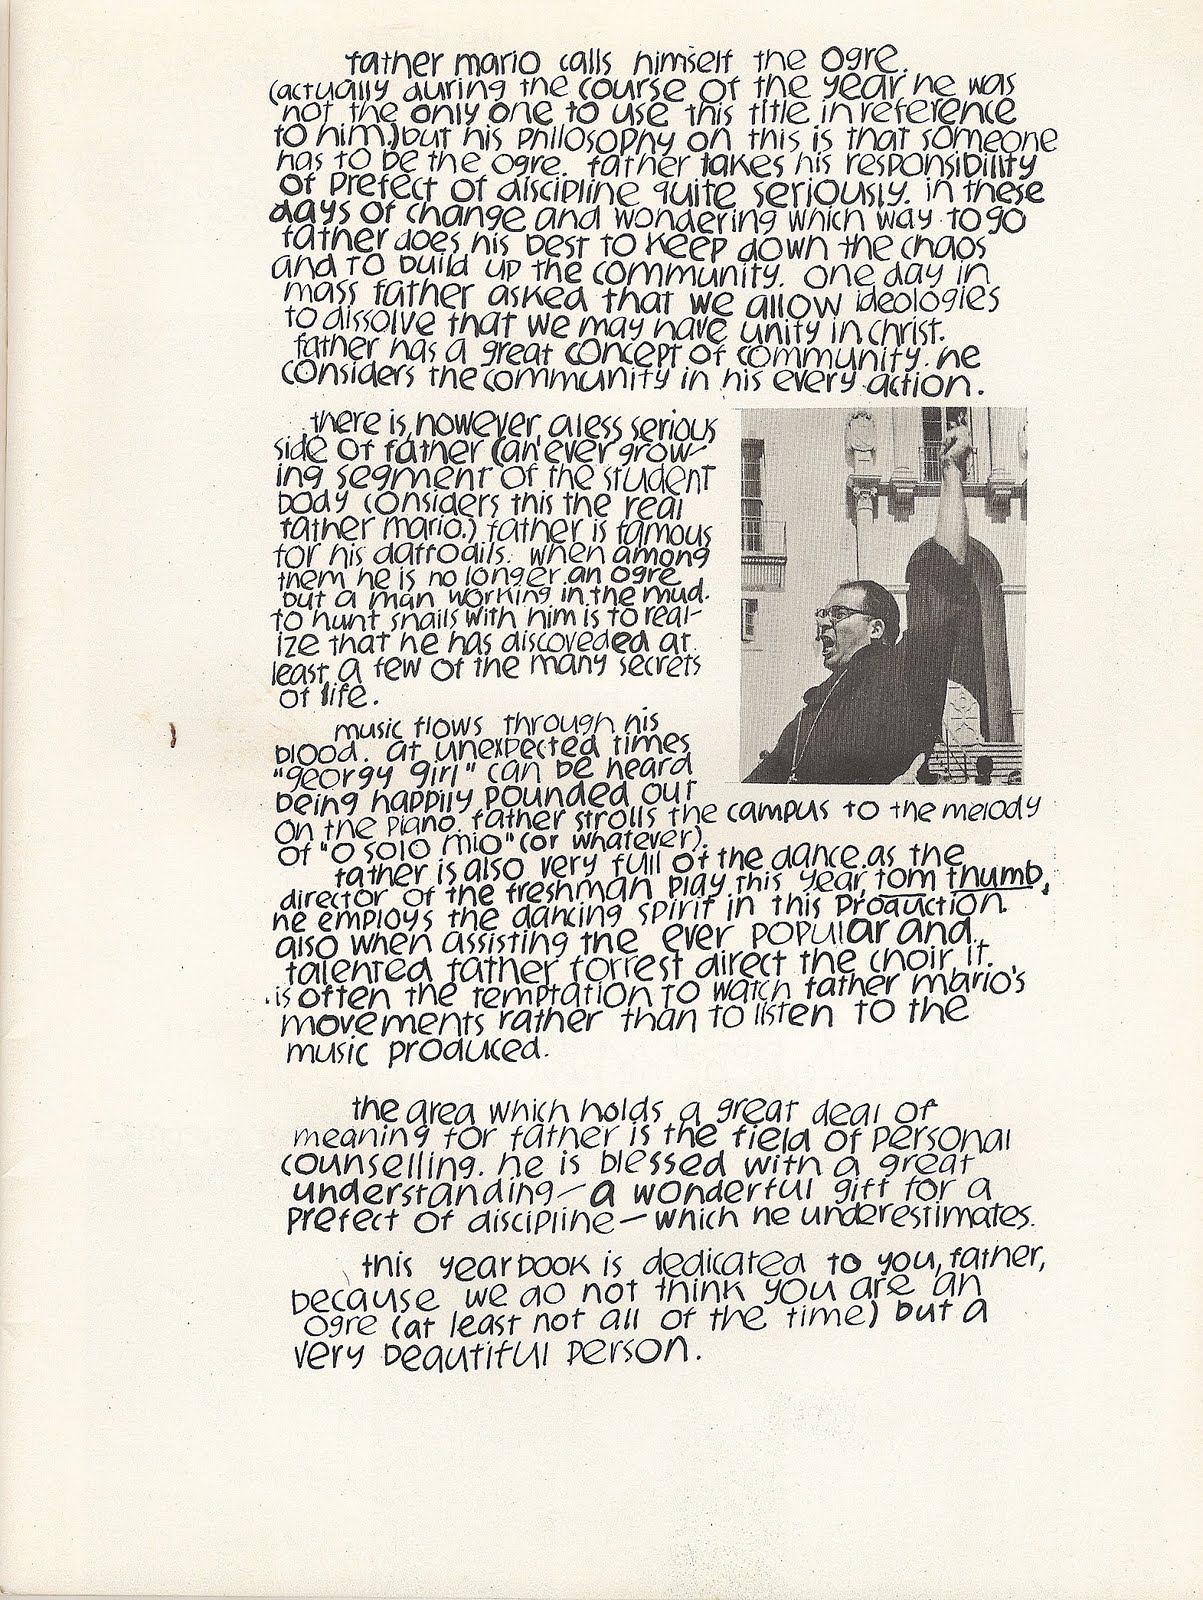 father mario calls himself the ogre.
(actually during the course of the year he was
not the only one to use this title in reference
to him.) but his philosophy on this is that someone
has to be the ogre. father takes his responsibility
of prefect of discipline quite seriously. in these
days of change and wondering which way to go
father does his best to keep down the chaos
and to build up the community. one day in
mass father asked that we allow ideologies
to dissolve that we may have unity in christ.
father has a great concept of community. he
considers the community in his every action.
there is, however, a less serious
side of father (an ever grow-
ing segment of the student
body considers this the real
father mario.) father is famous
for his daffodils. when among
them he is no longer an ogre
but a man working in the mud.
to hunt snails with him is to real-
ize that he has discoveded at
least a few of the many secrets
of life.
music flows through his
blood. at unexpected times
"georgy girl" can be heard
being happily pounded out
on the piano. father strolls the campus to the melody
of "o solo mio" (or whatever).
father is also very full of the dance. as the
director of the freshman play this year, tom thumb,
he employs the dancing spirit in this production.
also when assisting the ever popular and
talented father forrest direct the choir it
is often the temptation to watch father mario's
movements rather than to listen to the
music produced.
the area which holds a great deal of
meaning for father is the field of personal
counselling. he is blessed with a great
understanding — a wonderful gift for a
prefect of discipline — which he underestimates.
this yearbook is dedicated to you, father,
because we do not think you are an
ogre (at least not all of the time) but a
very beautiful person.